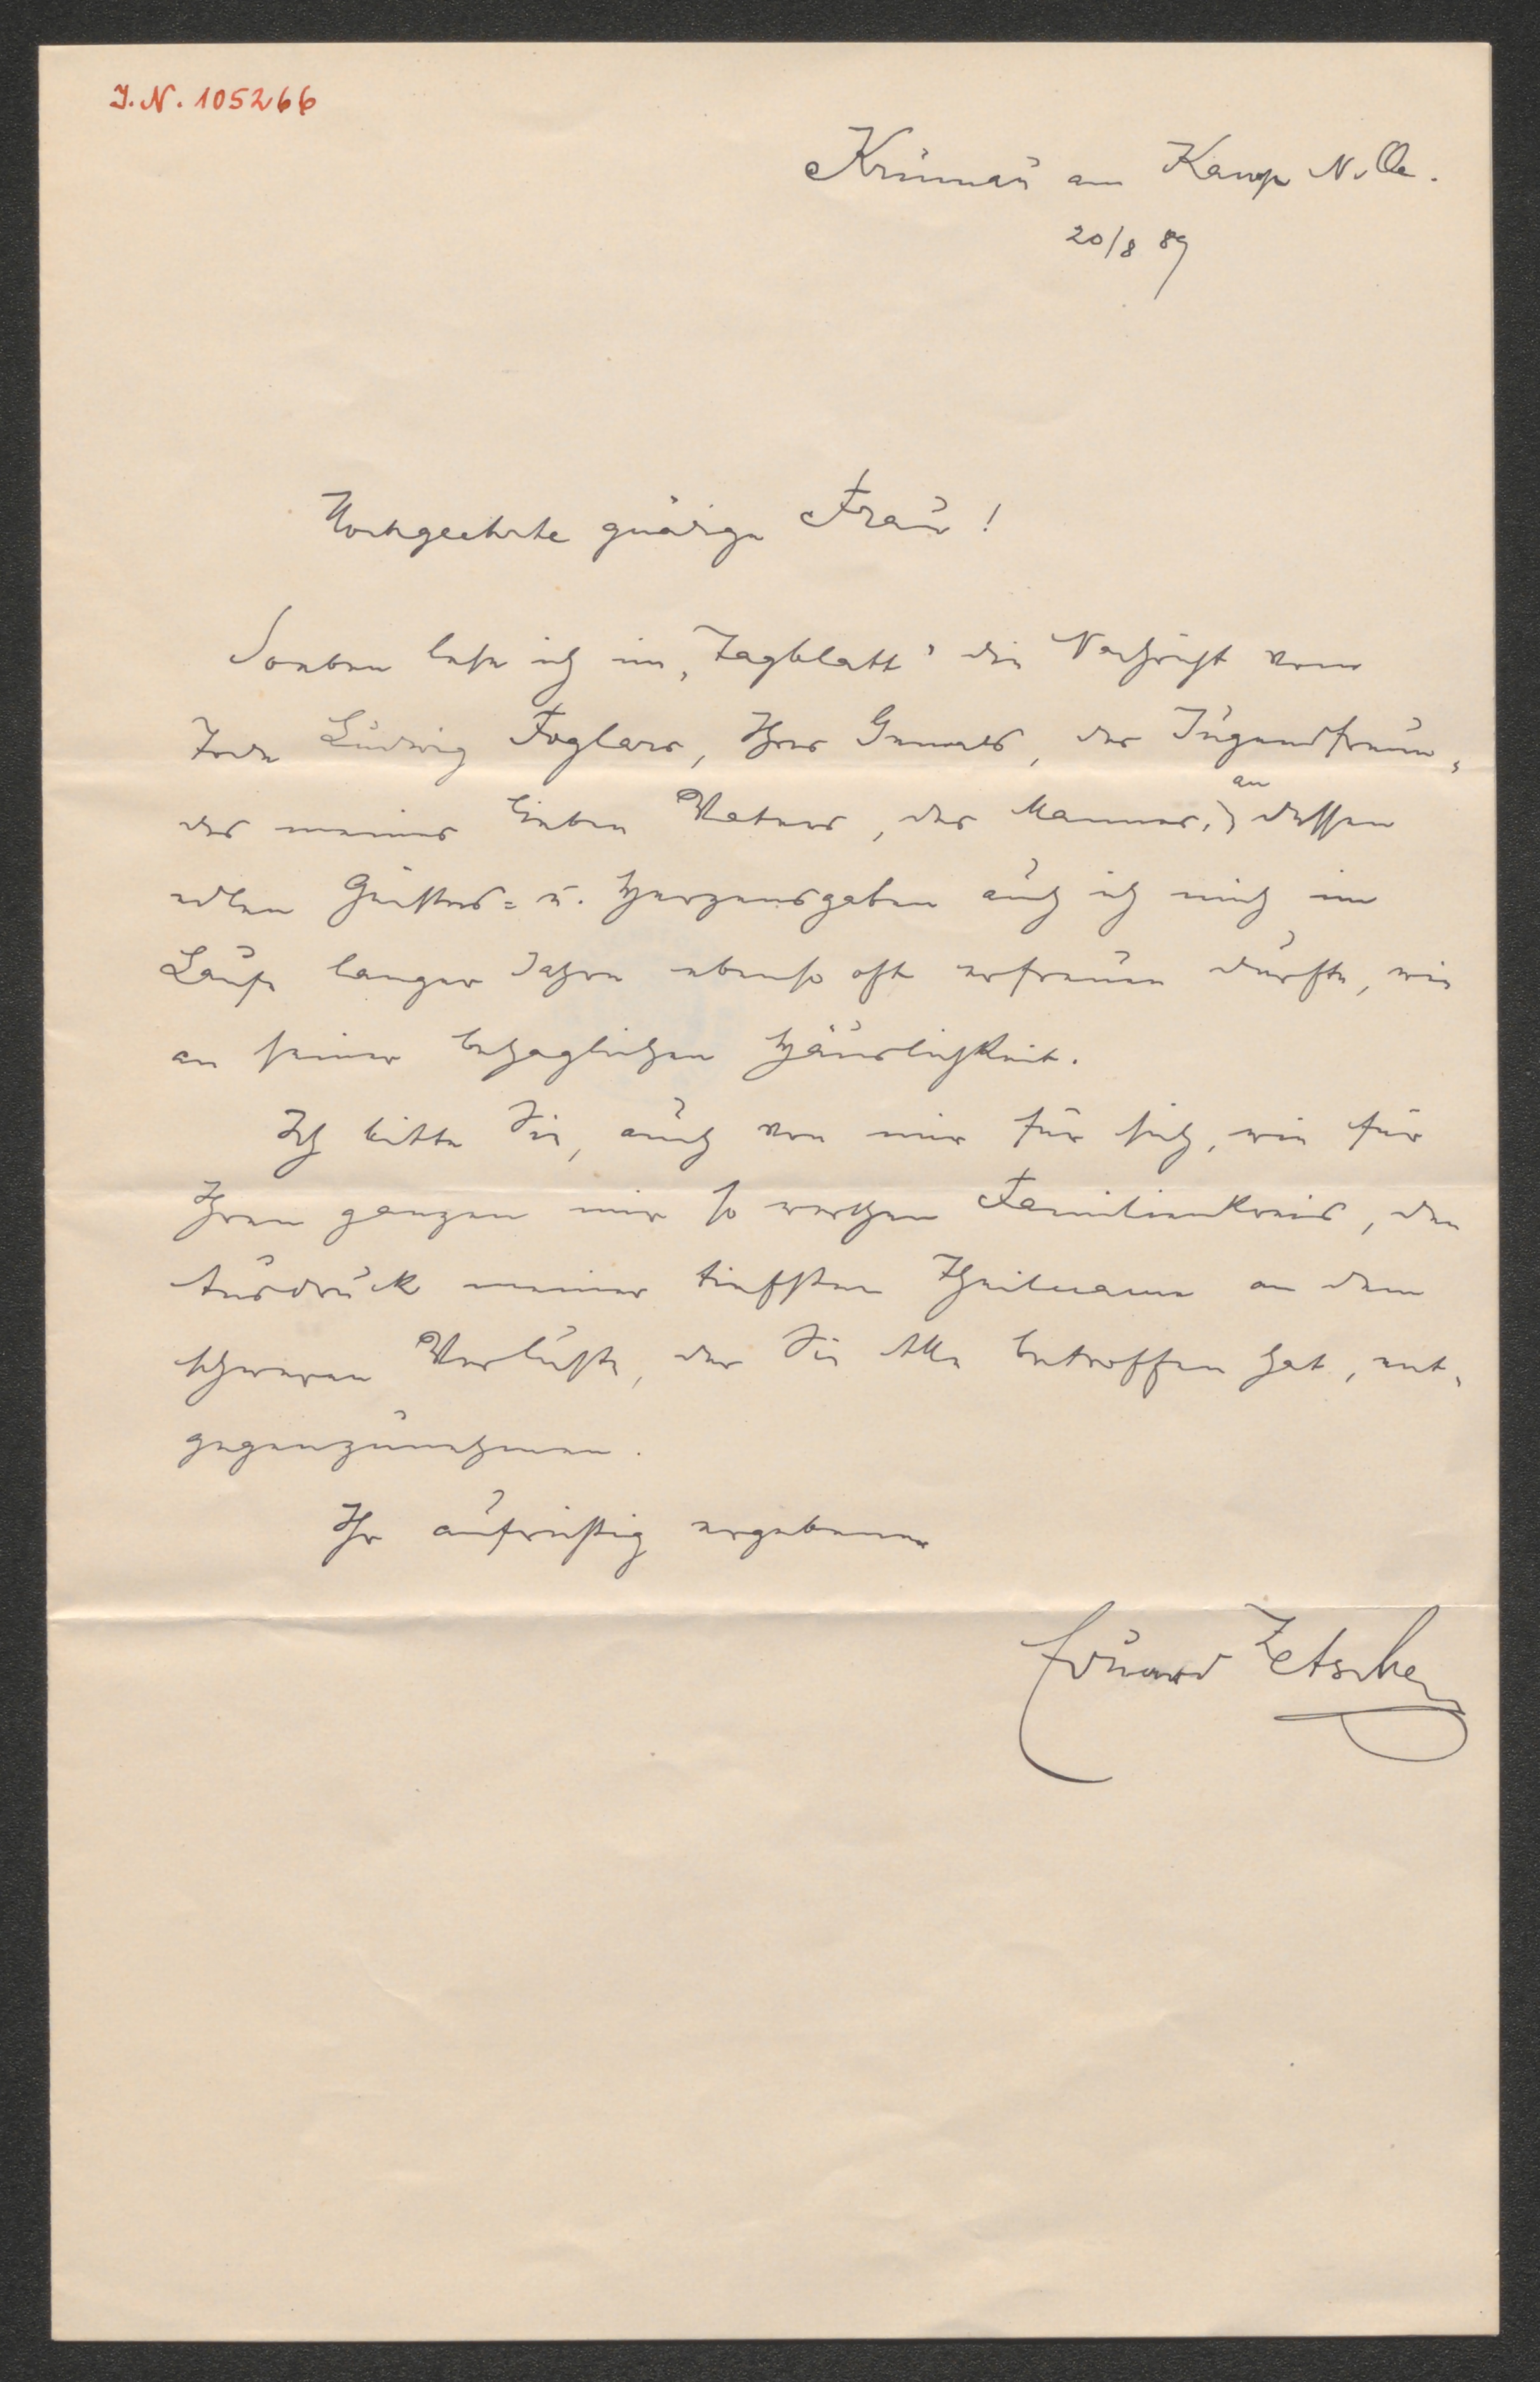 I.N. 105266
Krumau am Kamp N. Oe.
20/8 89
Hochgeehrte gnädige Frau!
Soeben lese ich im „Tagblatt" die Nachricht vom
Tode Ludwig Foglars, Ihres Gemals, des Jugendfreun-
des meines lieben Vaters, des Mannes, an dessen
edlen Geistes- u. Herzensgaben auch ich mich im
Laufe langer Jahre ebenso oft erfreuen durfte, wie
an seiner behaglichen Häuslichkeit.
Ich bitte Sie, auch von mir für sich, wie für
Ihren ganzen mir so werthen Familienkreis, den
Ausdruck meiner tiefsten Theilname an dem
schweren Verluste, der Sie Alle betroffen hat, ent-
gegenzunehmen.
Ihr aufrichtig ergebener
Eduard Zetsche